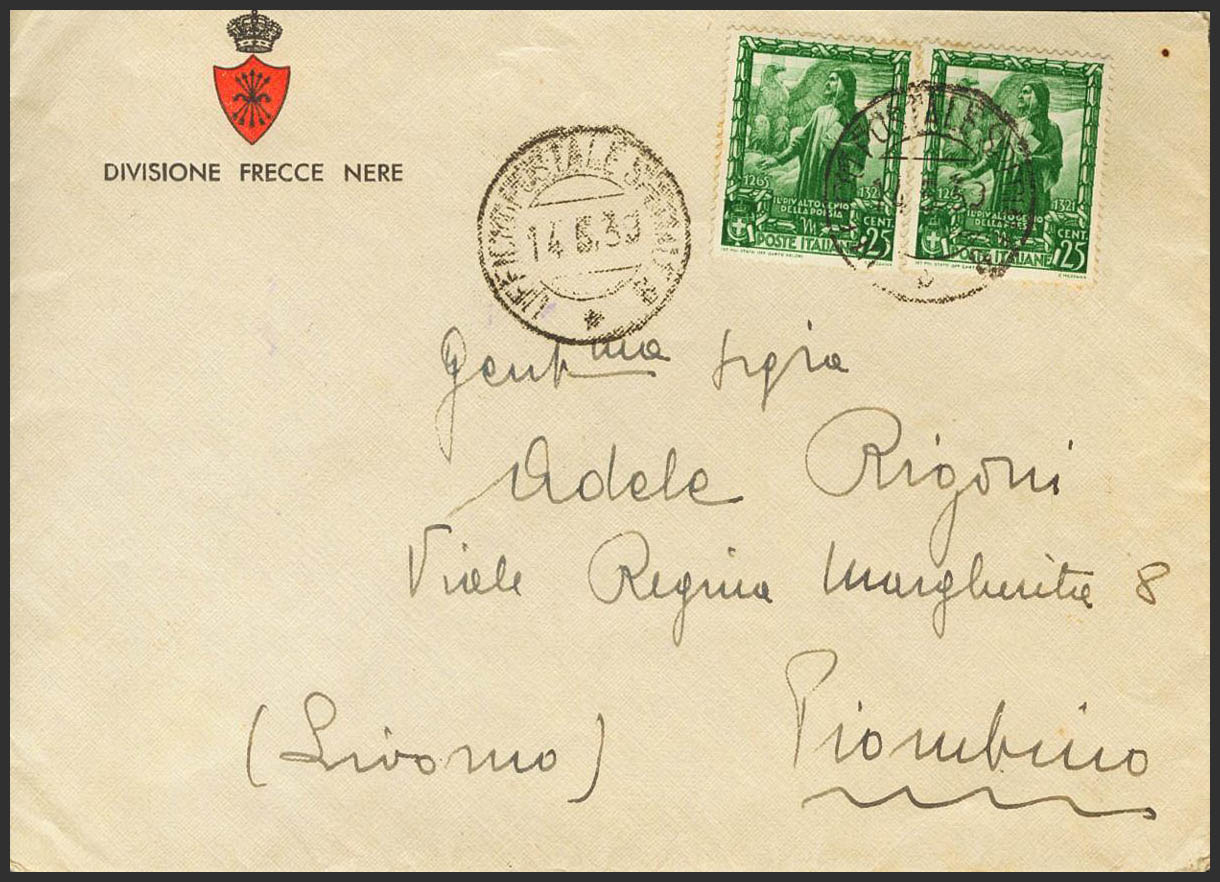 DIVISIONE FRECCE NERE
UFFICIO POSTALE SPECIALE
14.5.39
1265 1321
IL RIVALTO GENIO
DELLA POESIA
CENT. 25
POSTE ITALIANE
1321
IL RIVALTO GENIO
DELLA POESIA
CENT. 25
POSTE ITALIANE
Gentma Sigra
Adele Rigoni
Viale Regina Margherita 8
Piombino
(Livorno)